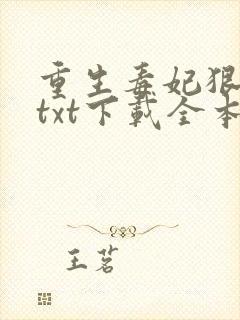 重生毒妃狠
txt下載全本
王茗